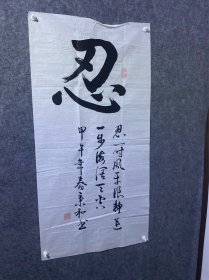 忍
忍一时风平浪静退
一步海阔天空
甲午年春景和书